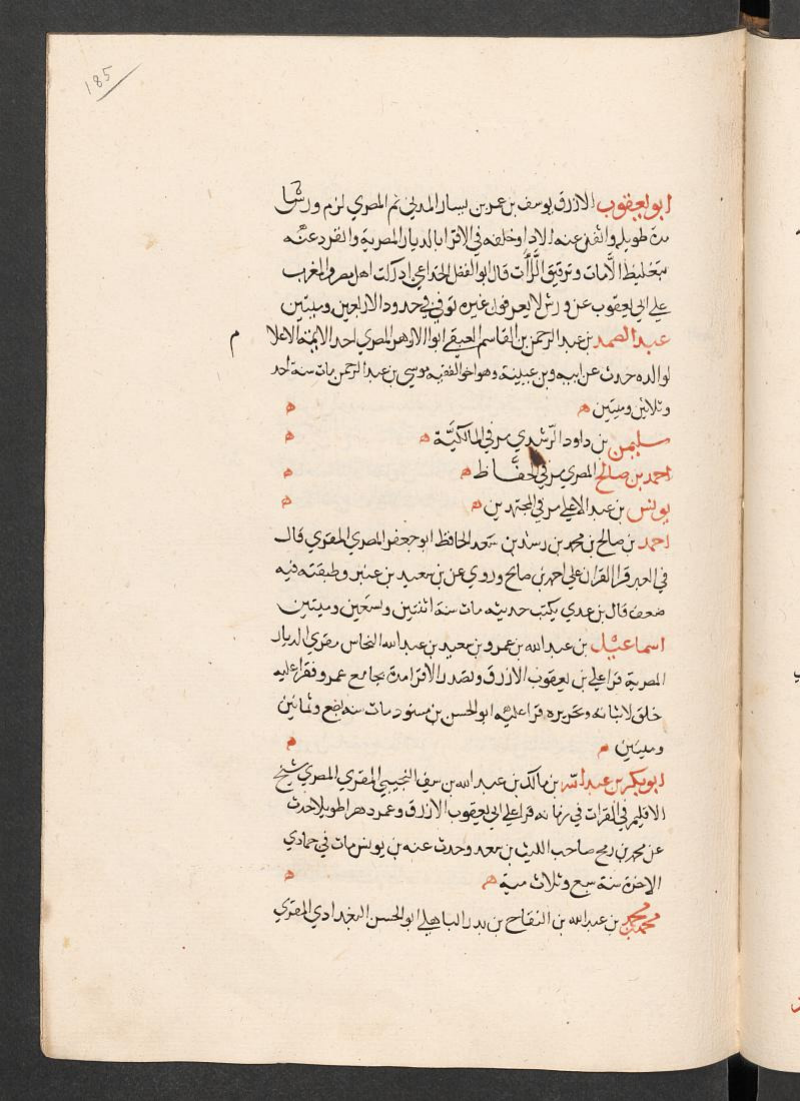 185
ابو يعقوب الازرق يوسف بن عمر بن يسار المدني ثم المصري لزم ورشا
مدة طويلة واتقن عنه الادا وخلفه في الاقرا بالديار المصرية وانفرد عنه
بتغليظ اللامات وترقيق الراآت قال ابو الفضل الخزاعي ادركت اهل مصر والمغرب
علي ابي يعقوب عن ورش لا يعرفون غيره توفي في حدود الاربعين وميتين
عبد الصمد بن عبد الرحمن بن القاسم العتيقي ابو الازهر المصري احد الايمة الاعلا م
لوالده حدث عن ابيه وبن عيينة وهو اخو الفقيه موسي بن عبد الرحمن مات سنة احد
وثلاثين وميتين ه ه
سليمن بن داود الرشدي مر في المالكية ه ه
احمد بن صالح المصري مر في الحفاظ ه ه
يونس بن عبد الاعلي مر في المجتهدين ه ه
احمد بن صالح بن محمد بن رسد بن سعد الحافظ ابو جعفر المصري المقري قال
في العبر قرا القران علي احمد بن صالح وروي عن بن سعيد بن عنبر وطبقته فيه
ضعف قال بن عدي يكتب حديثه مات سنة اثنتين وتسعين وميتين
اسماعيل بن عبد الله بن عمرو بن سعيد بن عبد الله النحاس مقري الديار
المصرية قرا علي بن يعقوب الازرق وتصدر الاقرا مدة بجامع عمرو فقرا عليه
خلق لاتقانه وتحريره قرا عليه ابو الحسن بن سنبود مات سنة بضع وثمانين
وميتين م م
ابو بكر بن عبد الله بن مالك بن عبد الله بن سيف التجيبي المقري المصري شيخ
الاقليم في القرات في زمانه قرا علي ابي يعقوب الازرق وعمر دهرا طويلا حدث
عن محمد بن رمح صاحب الليث بن سعد وحدث عنه بن يونس مات في جمادي
الاخرة سنة سبع وثلاث مية ه ه
محمد بن محمد بن عبد الله بن النفاح بن بدر الباهلي ابو الحسن البغدادي المقري